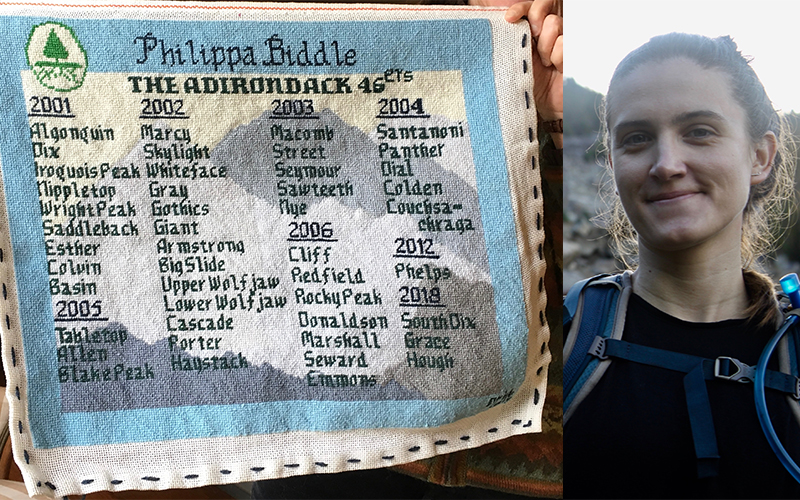 Philippa Biddle
THE ADIRONDACK 46ers
2001
Algonquin
Dix
Iroquois Peak
Nippletop
Wright Peak
Saddleback
Esther
Colvin
Basin
2005
Tabletop
Allen
Blake Peak
2002
Marcy
Skylight
Whiteface
Gray
Gothics
Giant
Armstrong
Big Slide
Upper Wolfjaw
Lower Wolfjaw
Cascade
Porter
Haystack
2003
Macomb
Street
Seymour
Sawteeth
Nye
2006
Cliff
Redfield
Rocky Peak
Donaldson
Marshall
Seward
Emmons
2004
Santanoni
Panther
Dial
Colden
Couchsa-
chraga
2012
Phelps
2018
South Dix
Grace
Hough